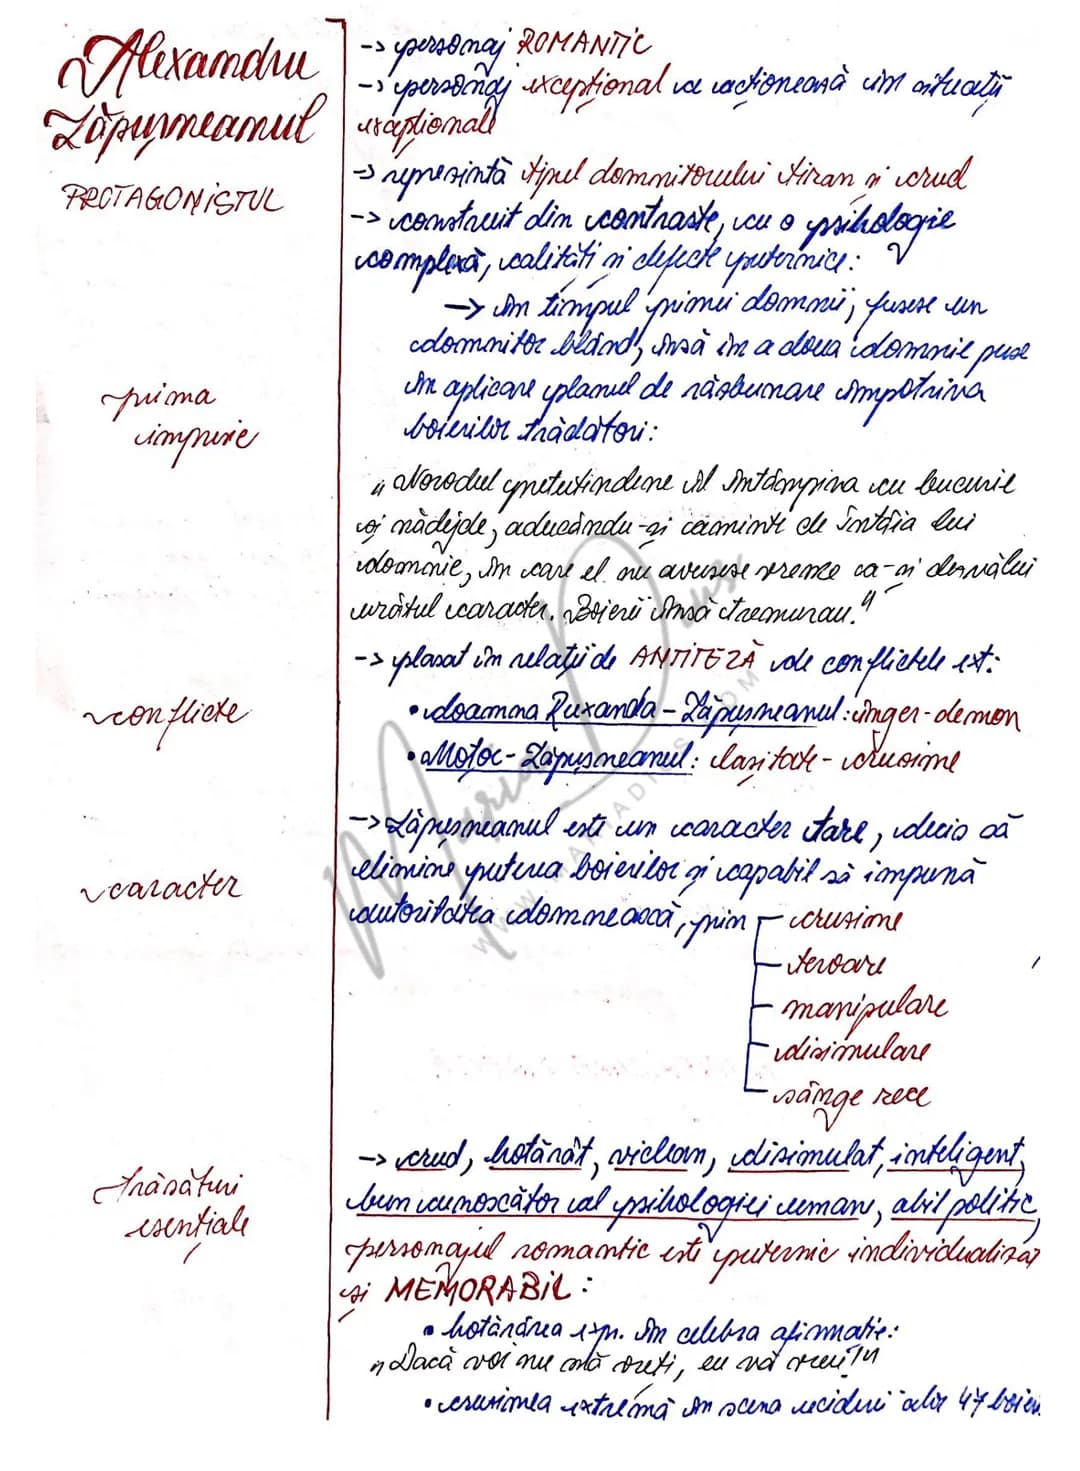 Alexandru
Lăpușneanul
PROTAGONISTUL
-> personaj ROMANTIC
-> personaj excepțional ce acționează în situații
excepționale
-> reprezintă tipul domnitorului tiran și crud
-> construit din contraste, cu o psihologie
complexă, calități și defecte puternice:
prima
impresie
-> în timpul primei domnii, fusese un
domnitor blând, însă în a doua domnie pune
în aplicare planul de răzbunare împotriva
boierilor trădători:
"Norodul pretutindene îl întâmpina cu bucurie
și nădejde, aducându-și aminte de întâia lui
domnie, în care el nu avusese vreme ca-și dezvălui
urâtul caracter. Boierii însă tremurau."
conflicte
-> plasat în relații de ANTITEZĂ de conflictele ext:
• doamna Ruxanda - Lăpușneanul: înger-demon
• Moțoc - Lăpușneanul: lașitate - cruzime
caracter
-> Lăpușneanul este un caracter tare, decis să
elimine puterea boierilor și capabil să impună
autoritatea domnească, prin
cruzime
teroare
manipulare
disimulare
sânge rece
trăsături
esențiale
-> crud, hotărât, viclean, disimulat, inteligent,
bun cunoscător al psihologiei umane, abil politic,
personajul romantic este puternic individualizat
și MEMORABIL:
• hotărârea exp. în celebra afirmație:
"Dacă voi nu mă vreți, eu vă vreu!"
• cruzimea extremă în scena uciderii celor 47 boieri
Maria Dius
WWW.MARIADIUS.COM